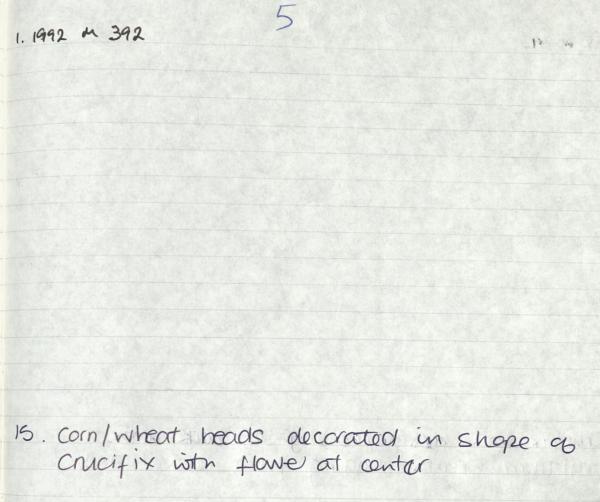 5
1. 1992 M 392
15. Corn/wheat heads decorated in shape of
Crucifix with flowe at center